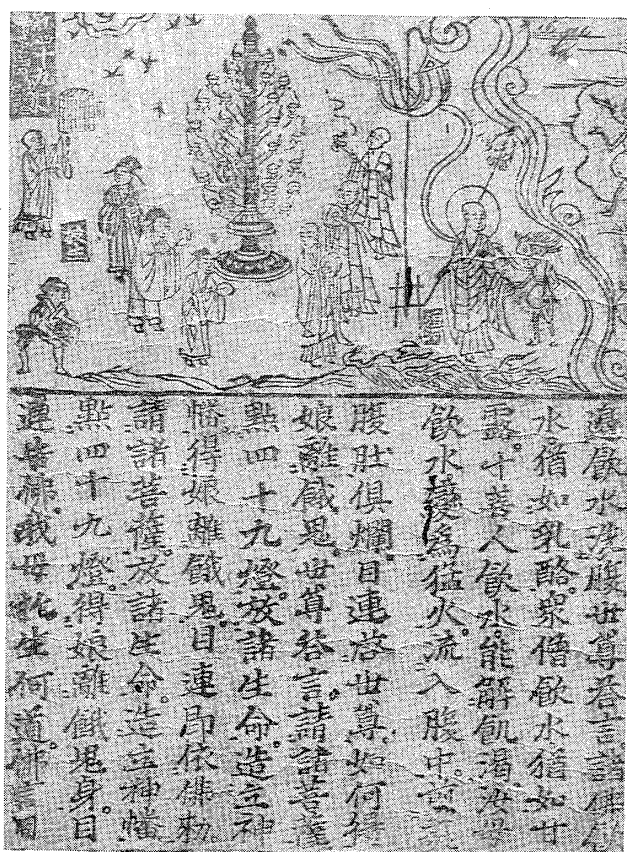 邊飲水洗腹世尊荅言諸佛飲
水猶如乳酪衆僧飲水猶如甘
露十善人飲水能解飢渴汝母
飲水變爲猛火流入腹中
腹肚俱爛目連啓世尊如何得
娘離餓鬼世尊荅言請諸菩薩
點四十九燈放諸生命造立神
幡得娘離餓鬼目連即依佛勑
請諸菩薩放諸生命造立神幡
點四十九燈得娘離餓鬼身目
連告佛我母託生何道佛言目